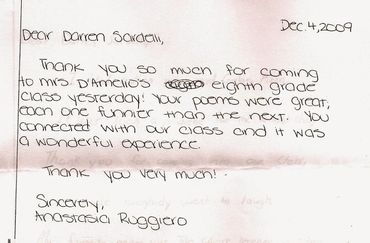 Dec. 4, 2009
Dear Darren Sardelli,
Thank you so much for coming
to Mrs. D'Amelio's eighth grade
class yesterday! Your poems were great,
each one funnier than the next. You
connected with our class and it was
a wonderful experience.
Thank you very much!
Sincerely,
Anastasia Ruggiero